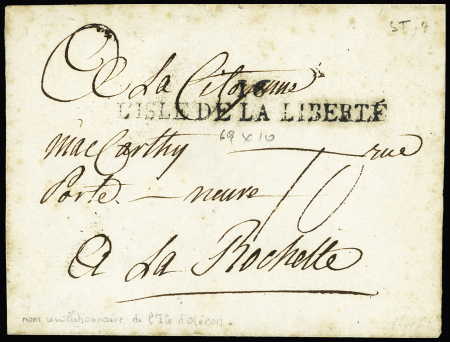 ST. 7
A La Citoyenne
16
L'ISLE DE LA LIBERTÉ
69 x 10
mac Carthy — rue
Porte — neuve — 10
A La Rochelle
nom révolutionnaire de l'Ile d'Oléron